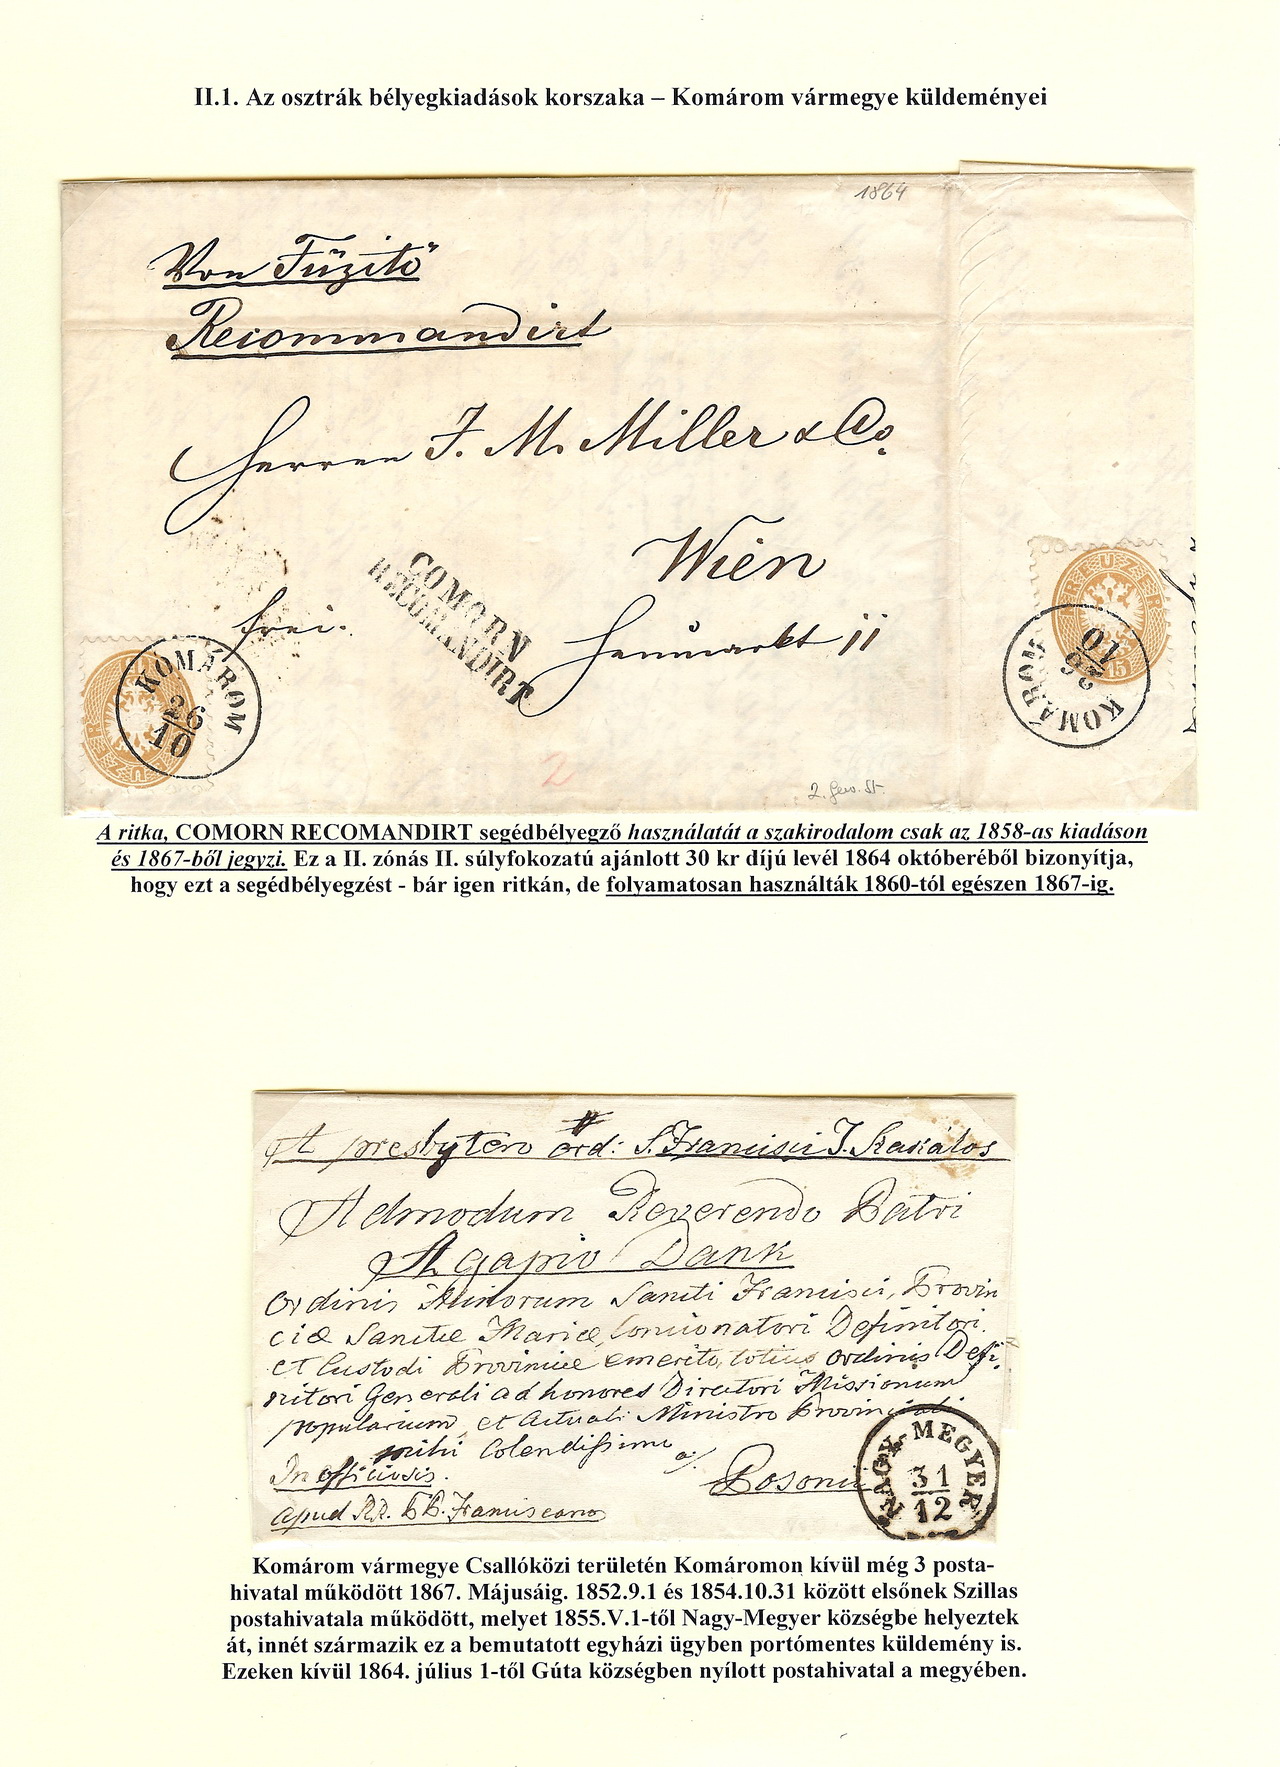 II.1. Az osztrák bélyegkiadások korszaka – Komárom vármegye küldeményei
1864
Von Füzitö
Recommandirt
Herren J. M. Miller & Co.
Wien
frei.
COMORN
RECOMANDIRT
Heumarkt 11
KOMÁROM
26
10
KREUZER
15
KOMÁROM
26
10
2
2. Gew. St.
A ritka, COMORN RECOMANDIRT segédbélyegző használatát a szakirodalom csak az 1858-as kiadáson
és 1867-ből jegyzi. Ez a II. zónás II. súlyfokozatú ajánlott 30 kr díjú levél 1864 októberéből bizonyítja,
hogy ezt a segédbélyegzést - bár igen ritkán, de folyamatosan használták 1860-tól egészen 1867-ig.
A presbytero ord: S. Francisci J. Szakálos
Admodum Reverendo Patri
Agapio Dank
Ordinis Minorum Sancti Francisci, Provin
ciæ Sanctæ Mariæ, Concionatori Definitori
et Custodi Provinciæ emerito, totius ordinis Defi-
nitori Generali ad honores Directori Missionum
popularium, et Actuali Ministro Provinciali
mihi Colendissimo
In officiosis.
Posonii
apud RR. PP. Franciscanos
NAGY-MEGYER
31
12
Komárom vármegye Csallóközi területén Komáromon kívül még 3 posta-
hivatal működött 1867. Májusáig. 1852.9.1 és 1854.10.31 között elsőnek Szillas
postahivatala működött, melyet 1855.V.1-től Nagy-Megyer községbe helyeztek
át, innét származik ez a bemutatott egyházi ügyben portómentes küldemény is.
Ezeken kívül 1864. július 1-től Gúta községben nyílott postahivatal a megyében.